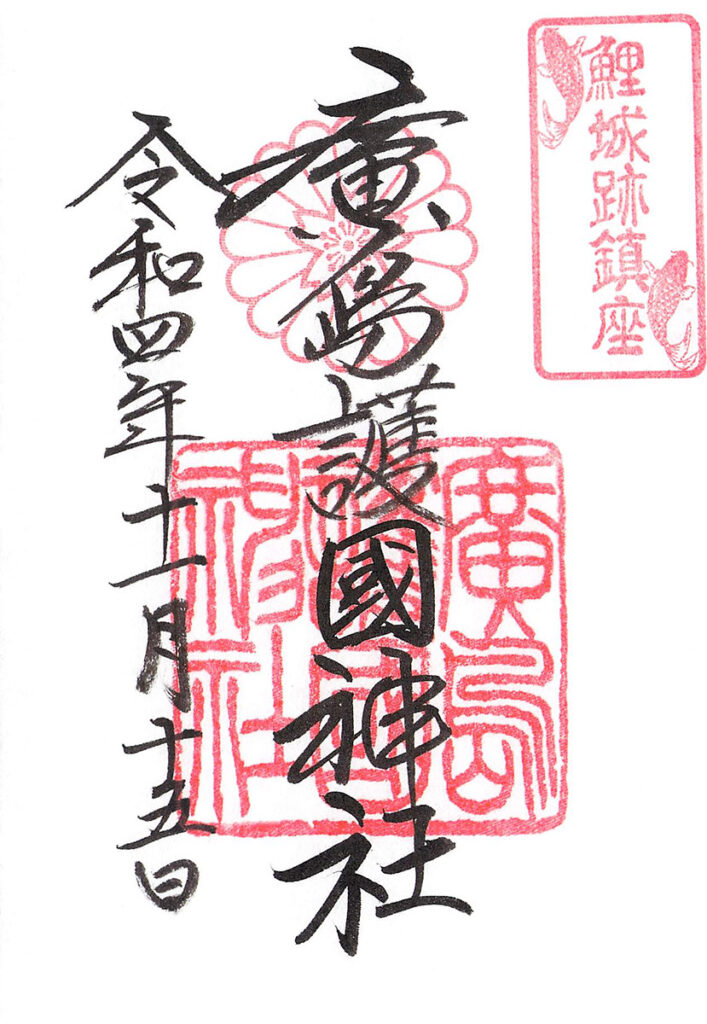 鯉城跡鎮座
廣島護國神社
令和四年十一月十五日
廣島
護國
神社